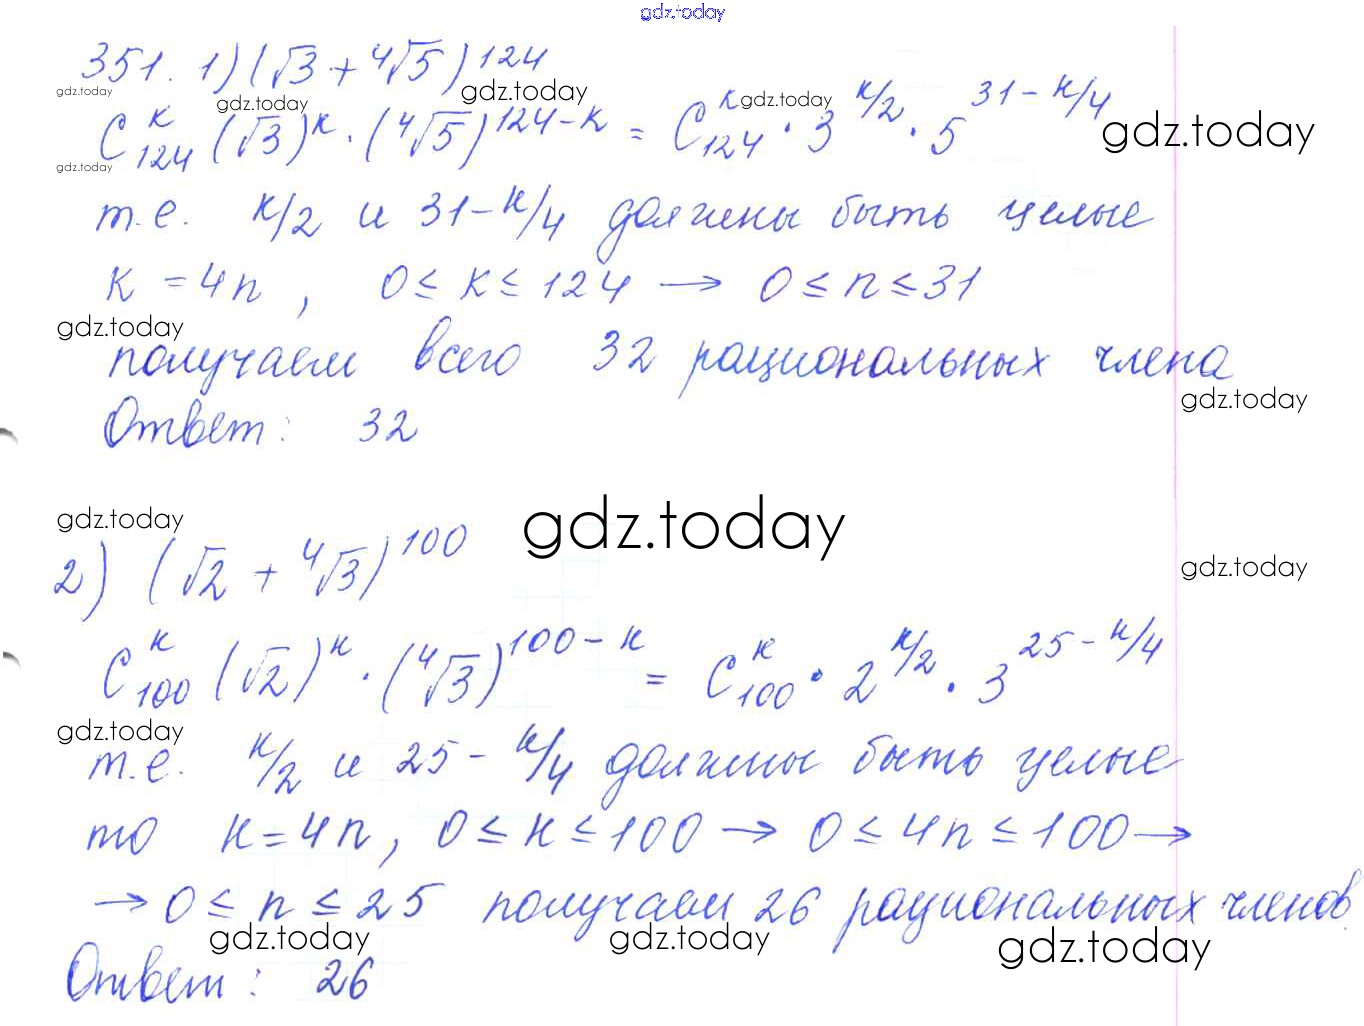 gdz.today
351. 1) (√3 + ⁴√5)¹²⁴
gdz.today gdz.today gdz.today gdz.today
C₁₂₄ᵏ (√3)ᵏ · (⁴√5)¹²⁴⁻ᵏ = C₁₂₄ᵏ · 3^(к/2) · 5^(31-к/4) gdz.today
gdz.today
т.е. к/2 и 31-к/4 должны быть целые
к = 4n, 0 ≤ к ≤ 124 → 0 ≤ n ≤ 31
gdz.today
получаем всего 32 рациональных члена
gdz.today
Ответ: 32
gdz.today gdz.today
2) (√2 + ⁴√3)¹⁰⁰
gdz.today
C₁₀₀ᵏ (√2)ᵏ · (⁴√3)¹⁰⁰⁻ᵏ = C₁₀₀ᵏ · 2^(к/2) · 3^(25-к/4)
gdz.today
т.е. к/2 и 25-к/4 должны быть целые
то к=4n, 0 ≤ к ≤ 100 → 0 ≤ 4n ≤ 100 →
→ 0 ≤ n ≤ 25 получаем 26 рациональных членов.
gdz.today gdz.today gdz.today
Ответ: 26